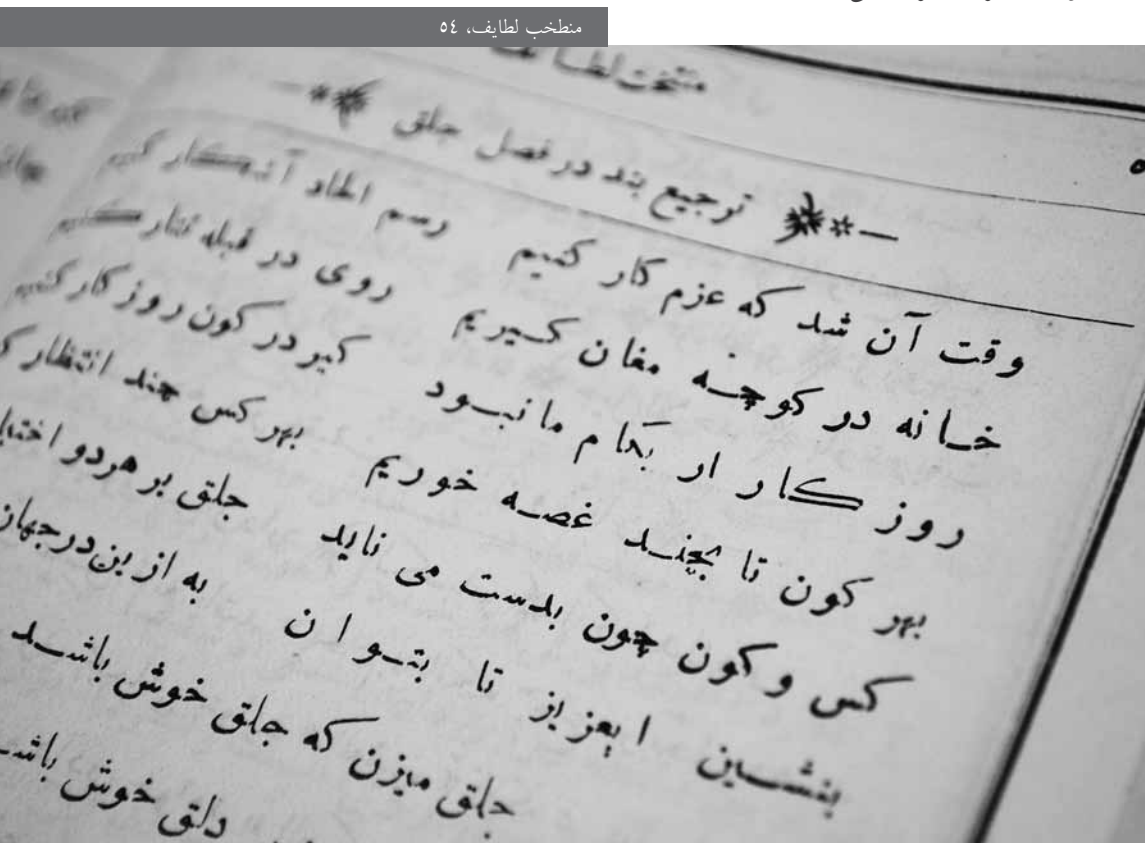 منطخب لطایف، ٥٤
منتخب لطایف
ترجیع بند در فصل جلق
وقت آن شد که عزم کار کنیم رسم الحاد آشکار کنیم
خانه در کوچه مغان گیریم روی در قبله تتار کنیم
روز کار ار بکام ما نبود کیر در کون روز کار کنیم
بهر کون تا بچند غصه خوریم بهر کس چند انتظار
کس و کون چون بدست می ناید جلق بر هردو
بنشین ایعزیز تا بتوان به ازین درجهان
جلق میزن که جلق خوش باشد
دلق خوش